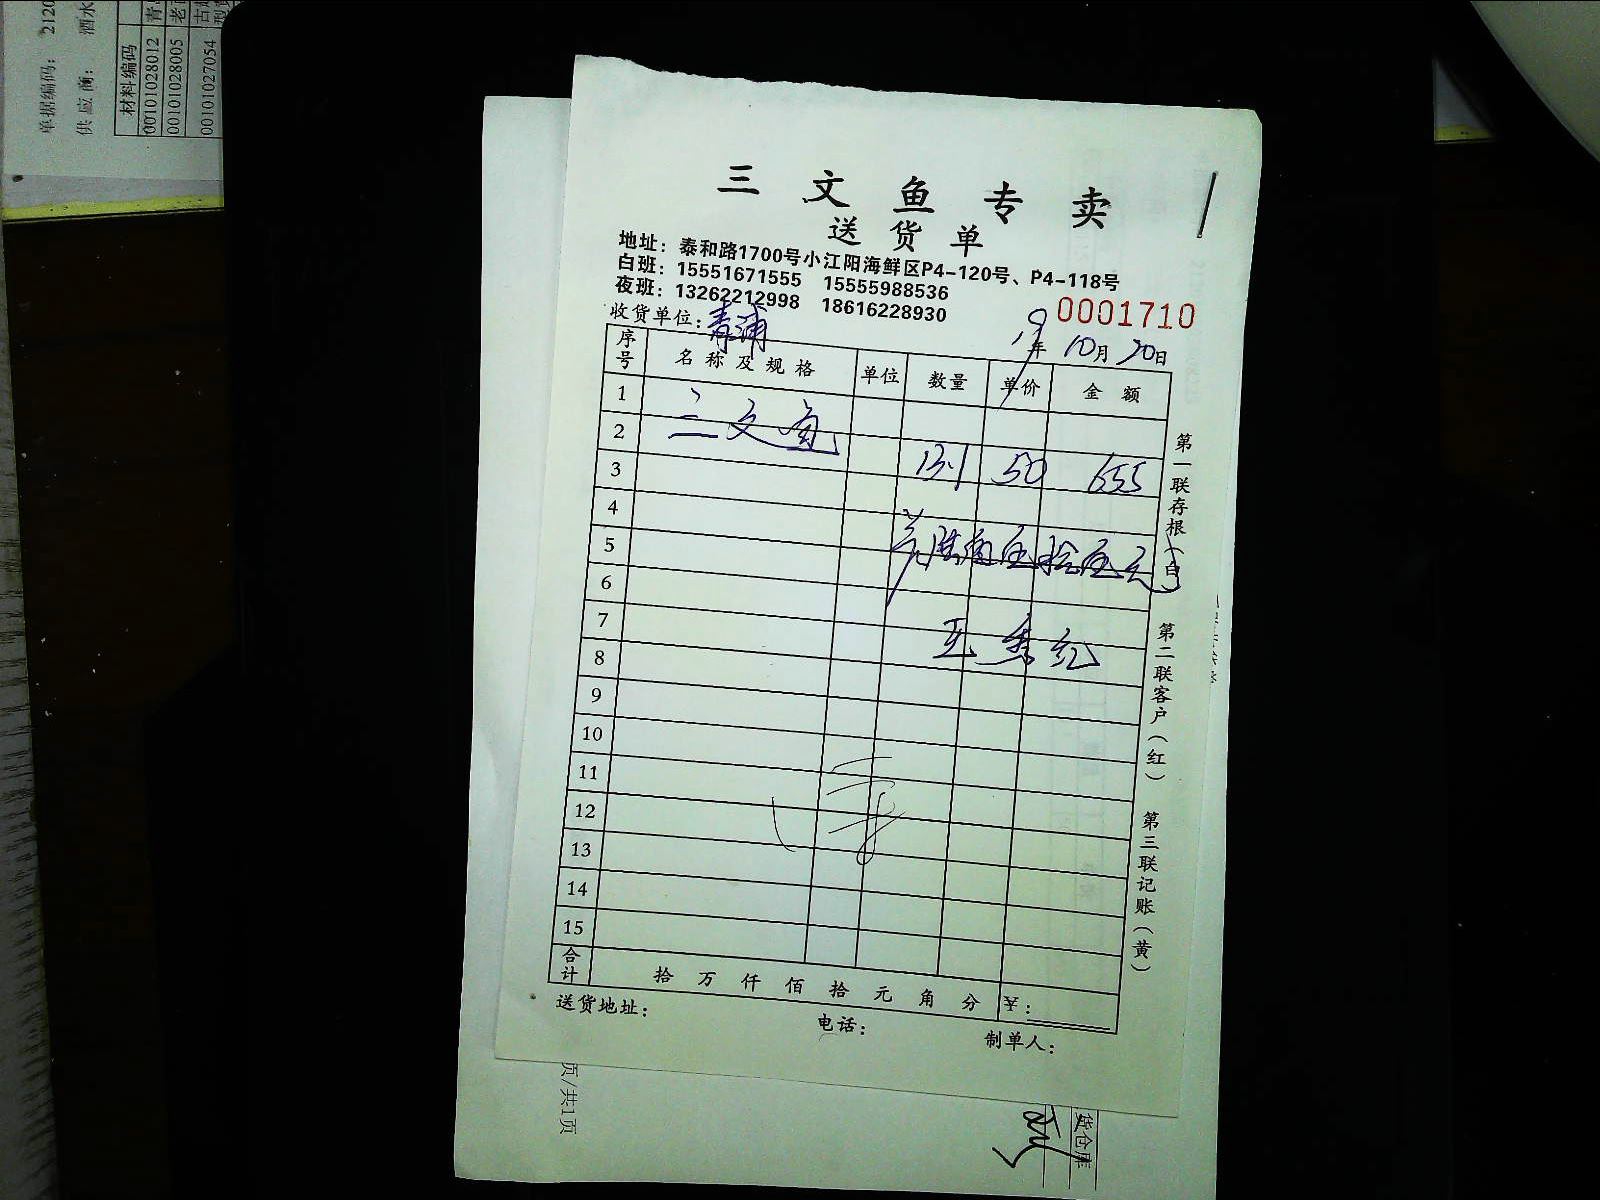 三文鱼专卖
送货单
地址：泰和路1700号小江阳海鲜区P4-120号、P4-118号
白班：15551671555 15555988536
夜班：13262212998 18616228930
0001710
收货单位：青浦
19年10月20日
序号 名称及规格 单位 数量 单价 金额
1
三文鱼
2
3 13.1 50 655
4
5 陆佰伍拾伍元
6
7
王秀红
8
9
10
11
12
13
14
15
合计 拾 万 仟 佰 拾 元 角 分 ¥：
送货地址： 电话： 制单人：
第一联存根（白）
第二联客户（红）
第三联记账（黄）
单据编码： 2120
供应商： 酒水
材料编码
00101028012 青
00101028005 老
00101027054
页/共1页